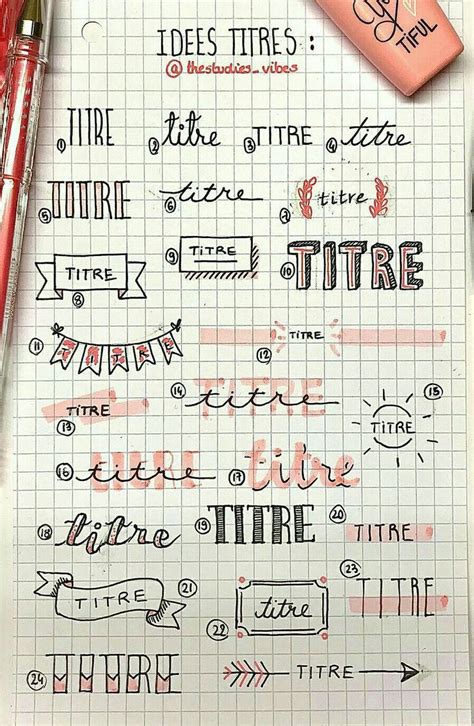 You
TIFUL
IDEES TITRES :
@thestudies_vibes
1 TITRE 2 titre 3 TITRE 4 titre
5 TITRE 6 titre 7 titre
TITRE 8 9 TITRE 10 TITRE
11 TITRE 12 TITRE
13 TITRE 14 titre TITRE 15 TITRE
16 titre 17 titre
18 titre 19 TITRE 20 TITRE
TITRE 21 22 titre 23 TITRE
24 TITRE TITRE